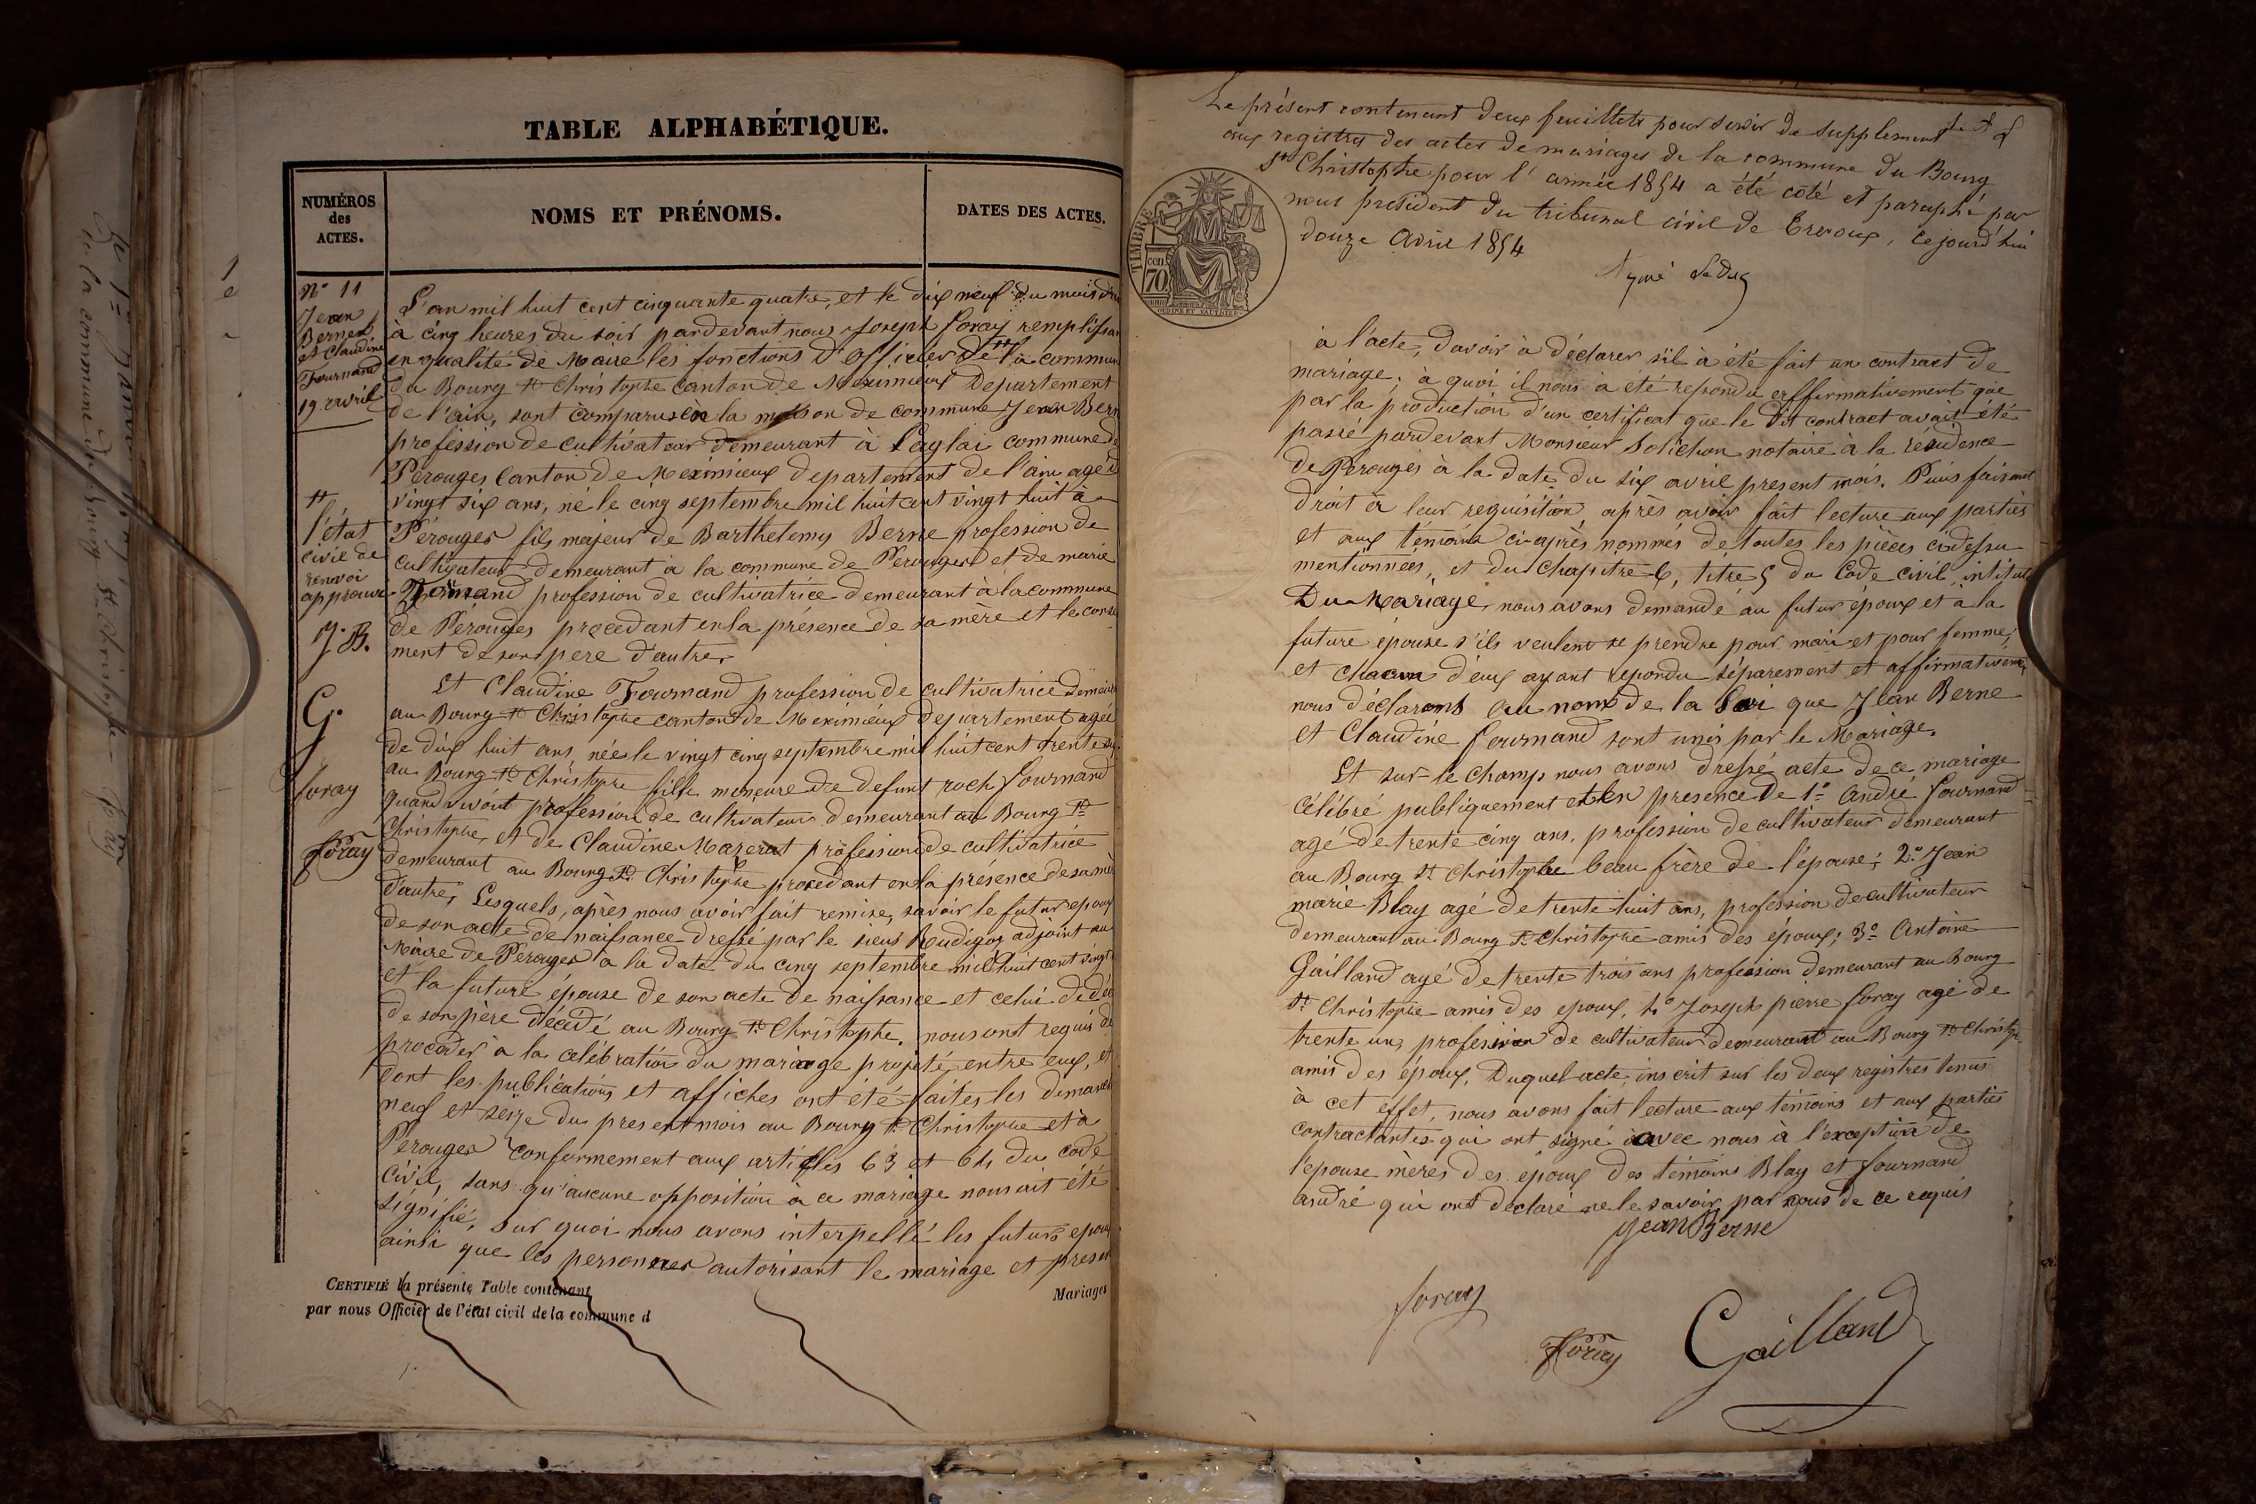 TABLE ALPHABÉTIQUE.
NUMÉROS
des
ACTES.
NOMS ET PRÉNOMS.
DATES DES ACTES.
N° 11
Jean
Berne
et Claudine
Fournand
19 avril
L'an mil huit cent cinquante quatre, et le dix neuf du mois
à cinq heures du soir pardevant nous Joseph Foray remplissan
en qualité de Maire les fonctions d'officier de la commun
du Bourg St Christophe canton de Meximieux Departement
de l'ain, sont comparus en la maison de commune Jean Bern
profession de cultivateur demeurant à commune de
Pérouges Canton de Meximieux departement de l'ain agé d
vingt six ans, né le cinq septembre mil huit cent vingt huit à
Pérouges fils majeur de Barthélemy Berne profession de
cultivateur demeurant à la commune de Pérouges et de marie
profession de cultivatrice demeurant à la commune
de Pérouges procédant en la présence de sa mère et le conse
ment de son pere d'autre
l'état
civil de
renvoi
approuvé
J. B.
G.
foray
Foray
Et Claudine Fournand profession de cultivatrice demeur
au Bourg St Christophe canton de Meximieux departement agée
de dix huit ans, née le vingt cinq septembre mil huit cent trente
au Bourg St Christophe fille mineure de defunt roch fournand
quand vivoit profession de cultivateur demeurant au Bourg St
Christophe, et de Claudine Mazerat profession de cultivatrice
demeurant au Bourg St Christophe procédant en la présence de sa mère
d'autre; Lesquels, après nous avoir fait remise, savoir le futur epoux
de son acte de naissance dressé par le sieur Rudigoz adjoint au
Maire de Pérouges à la date du cinq septembre mil huit cent vingt
et la future épouse de son acte de naissance et celui de déc
de son père décédé au Bourg St Christophe, nous ont requis de
procéder à la célébration du mariage projeté entre eux, et
dont les publications et affiches ont été faites les dimanch
neuf et seize du present mois au Bourg St Christophe et à
Pérouges conformement aux articles 63 et 64 du code
Civil, sans qu'aucune opposition à ce mariage nous ait été
signifié, sur quoi nous avons interpellé les futurs epoux
ainsi que les personnes autorisant le mariage et presen
CERTIFIÉ la présente Table contenant
Mariages
par nous Officier de l'état civil de la commune d
Le présent contenant deux feuillets pour servir de supplement
aux registres des actes de mariages de la commune du Bourg
St Christophe pour l'année 1854 a été coté et paraphé par
nous président du tribunal civil de Trevoux, ce jourd'hui
douze Avril 1854
TIMBRE
70
à l'acte, d'avoir à déclarer s'il à été fait un contract de
mariage; à quoi il nous a été repondu affirmativement que
par la production d'un certificat que le dit contract avait été
passé pardevant Monsieur Solichon notaire à la residence
de Pérouges à la date du six avril present mois. Puis faisant
droit à leur requisition après avoir fait lecture aux parties
et aux témoins ci-après nommés de toutes les pièces cidessu
mentionnées, et du chapitre 6, titre 5 du Code civil, intitulé
Du Mariage, nous avons demandé au futur époux et à la
future épouse s'ils veulent se prendre pour mari et pour femme;
et chacun d'eux ayant repondu séparement et affirmativemen
nous déclarons au nom de la Loi que Jean Berne
et Claudine fournand sont unis par le Mariage.
Et sur-le champ nous avons dressé acte de ce mariage
célébré publiquement et en presence de 1° André fournand
agé de trente cinq ans, profession de cultivateur demeurant
au Bourg St Christophe beau frère de l'épouse; 2° Jean
marie Blay agé de trente huit ans, profession de cultivateur
demeurant au Bourg St Christophe amis des époux; 3° Antoine
Gailland agé de trente trois ans profession demeurant au Bourg
St Christophe amis des epoux, 4° Joseph pierre foray agé de
trente un, profession de cultivateur demeurant au Bourg St Christophe
amis des époux. Duquel acte, inscrit sur les deux registres tenus
à cet effet, nous avons fait lecture aux témoins et aux parties
contractantes qui ont signé avec nous à l'exception de
l'epouse mères des époux des témoins Blay et fournand
andré qui ont declaré ne le savoir par nous de ce requis
Jean Berne
foray
Foray
Gailland